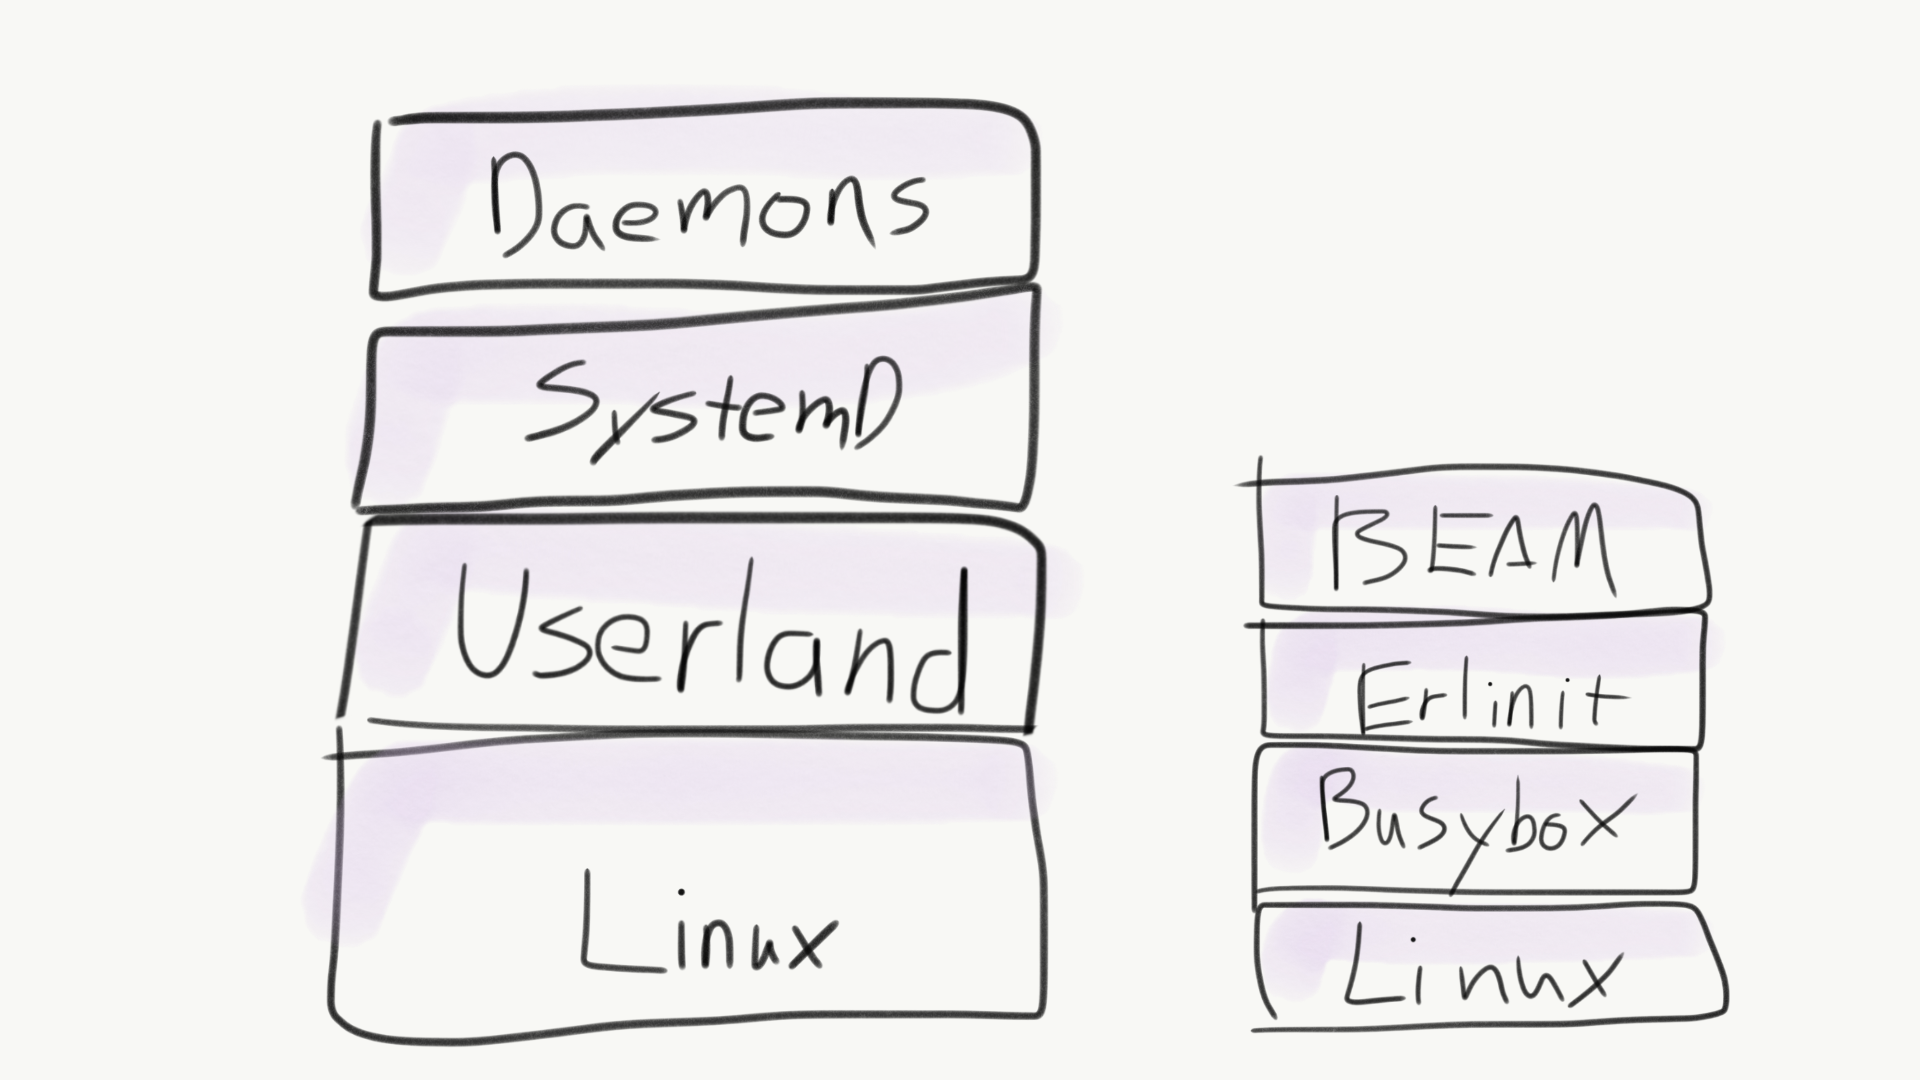 Daemons
SystemD
Userland
Linux
BEAM
Erlinit
Busybox
Linux